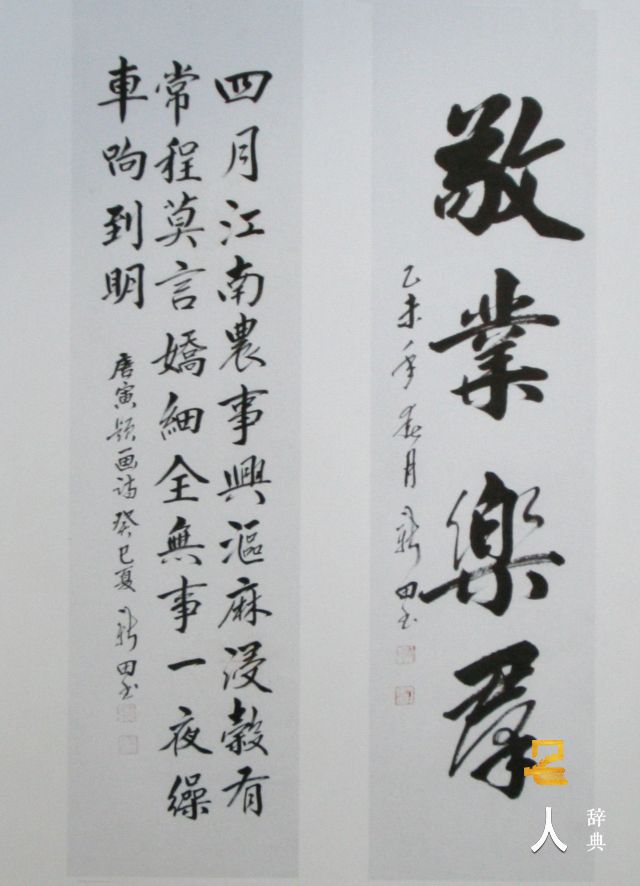 敬業樂羣
乙未年春月 田书
四月江南農事興漚麻浸穀有
常程莫言嬌細全無事一夜繰
車响到明
唐寅题画诗癸巳夏 田书
名人
辞典